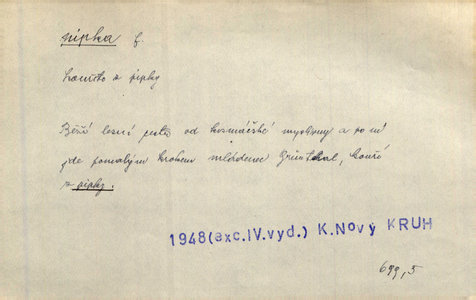 pipka f.
kouřiti z pipky
Běží lesní cesta od kosmáčské myslivny a po ní
jde pomalým krokem mládenec Grünthal, kouře
z pipky.
1948(exc.IV.vyd.) K.Nový KRUH
699,5